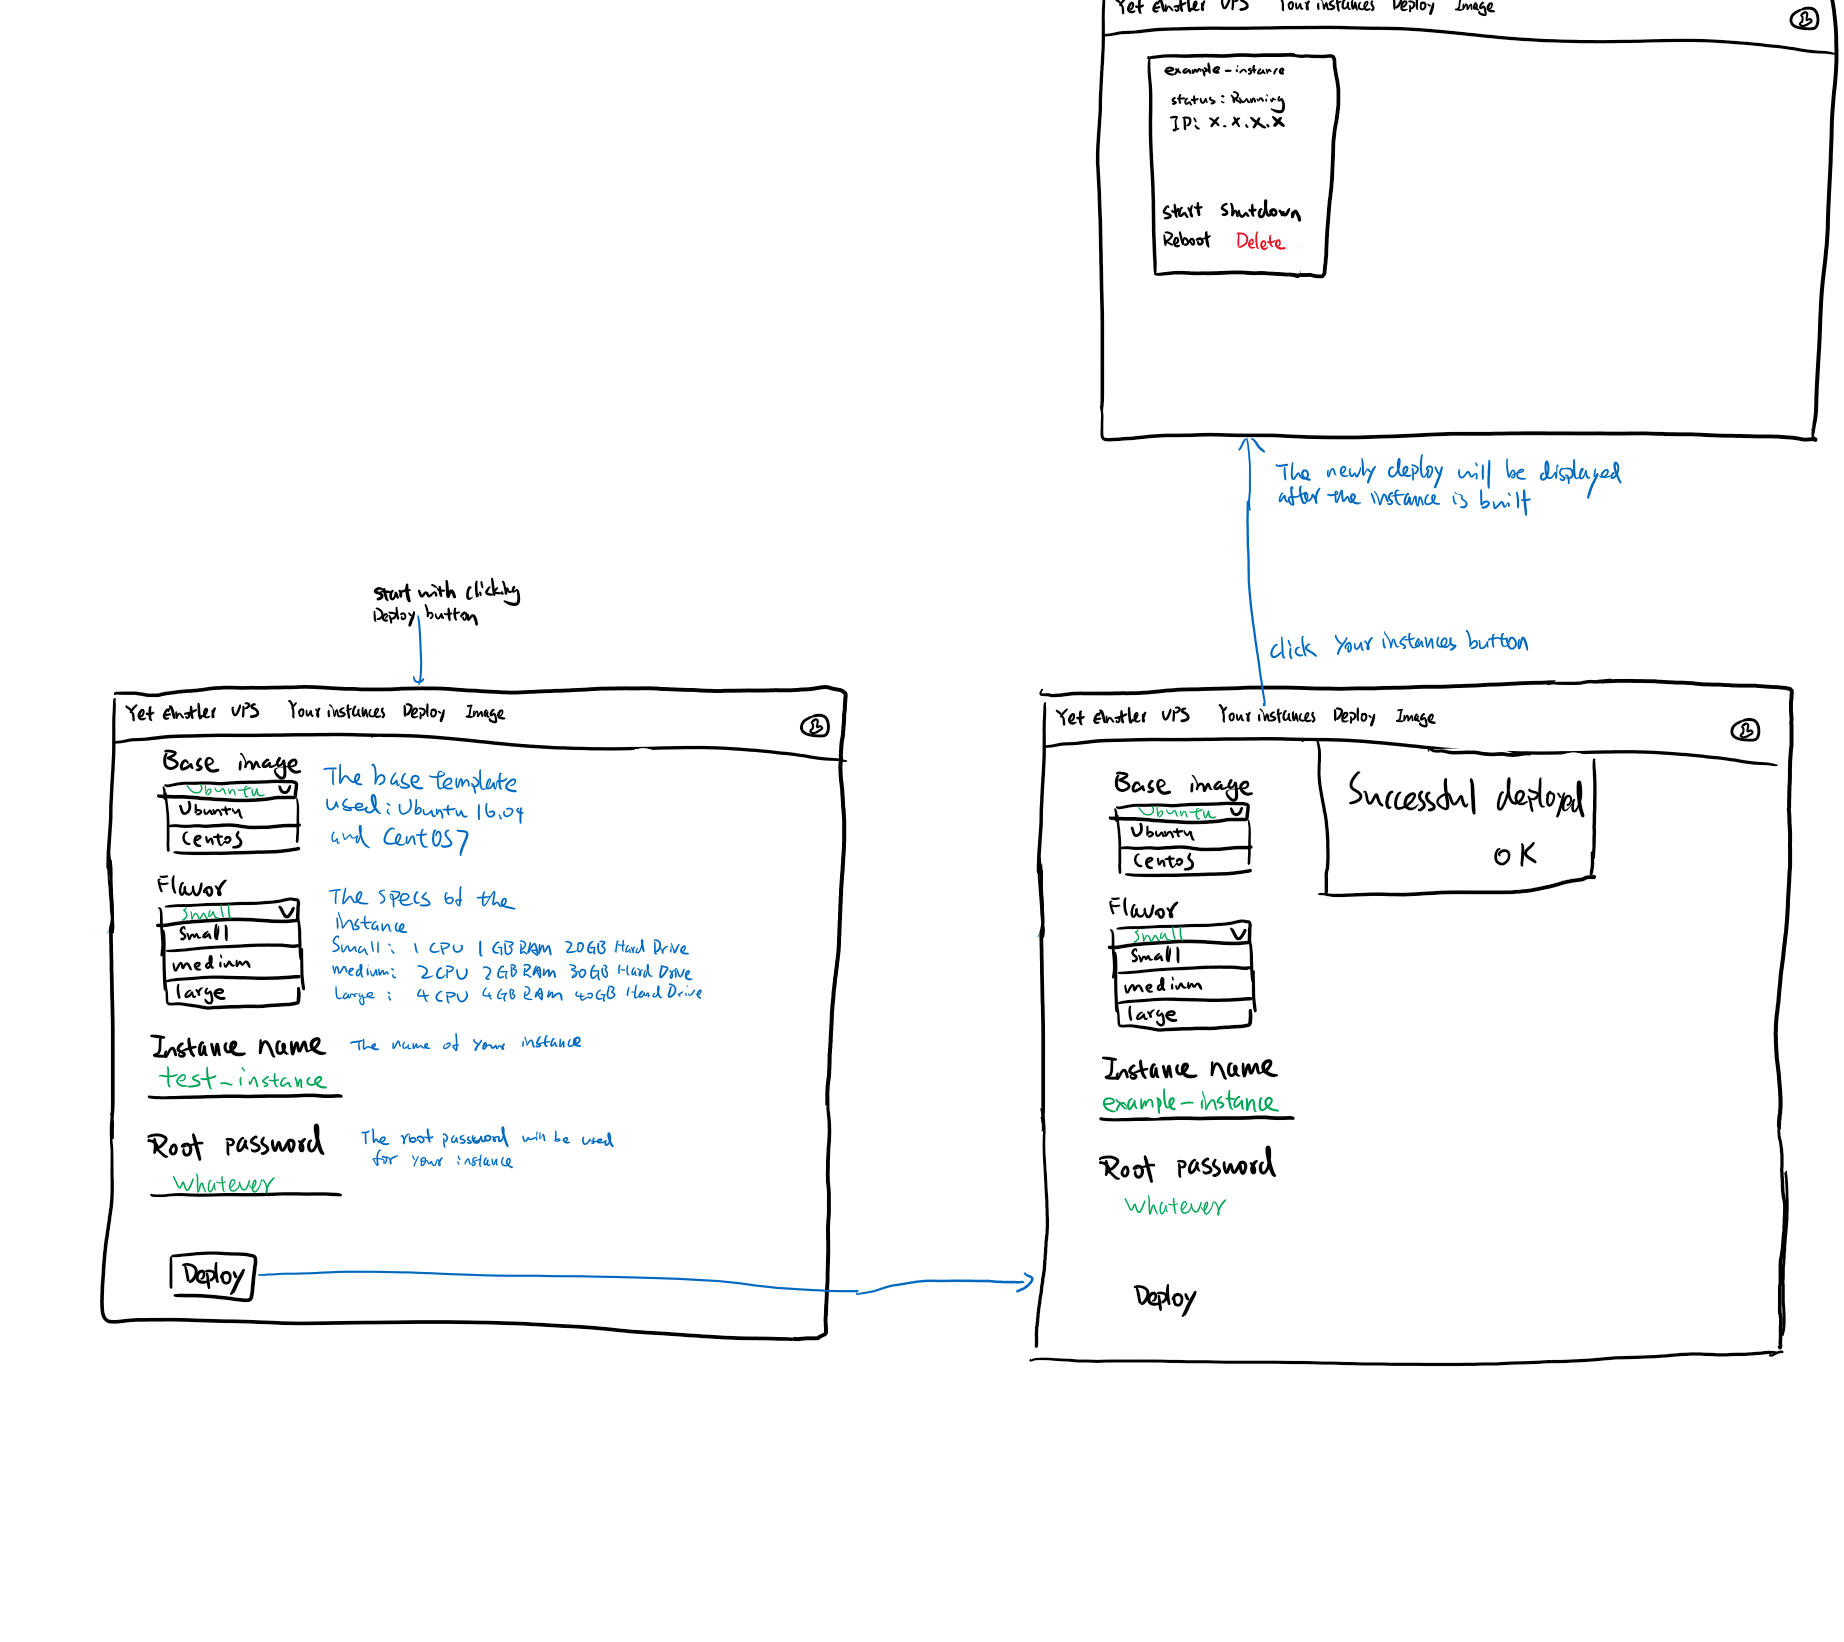 Yet Another VPS Your instances Deploy Image
example-instance
status: Running
IP: x.x.x.x
Start Shutdown
Reboot Delete
The newly deploy will be displayed
after the instance is built
click Your instances button
Start with clicking
Deploy button
Yet Another VPS Your instances Deploy Image
Base image
Ubuntu
Ubuntu
CentOS
The base template
used: Ubuntu 16.04
and CentOS7
Flavor
Small
Small
medium
large
The specs of the
instance
Small: 1 CPU 1 GB RAM 20GB Hard Drive
medium: 2 CPU 2 GB RAM 30GB Hard Drive
Large: 4 CPU 4GB RAM 40GB Hard Drive
Instance name
The name of your instance
test-instance
Root password
The root password will be used
for your instance
Whatever
Deploy
Yet Another VPS Your instances Deploy Image
Successful deployed
OK
Base image
Ubuntu
Ubuntu
CentOS
Flavor
Small
Small
medium
large
Instance name
example-instance
Root password
Whatever
Deploy